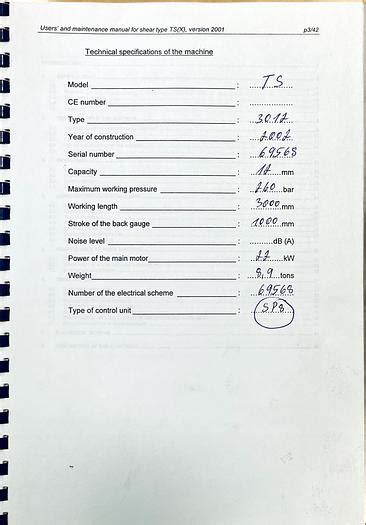 Users' and maintenance manual for shear type TS(X), version 2001 p3/42
Technical specifications of the machine
Model : TS
CE number : ....................
Type : 3012
Year of construction : 2002
Serial number : 69568
Capacity : 12 mm
Maximum working pressure : 260 bar
Working length : 3000 mm
Stroke of the back gauge : 1000 mm
Noise level : ..........dB (A)
Power of the main motor : 22 kW
Weight : 8,9 tons
Number of the electrical scheme : 69568
Type of control unit : SP8